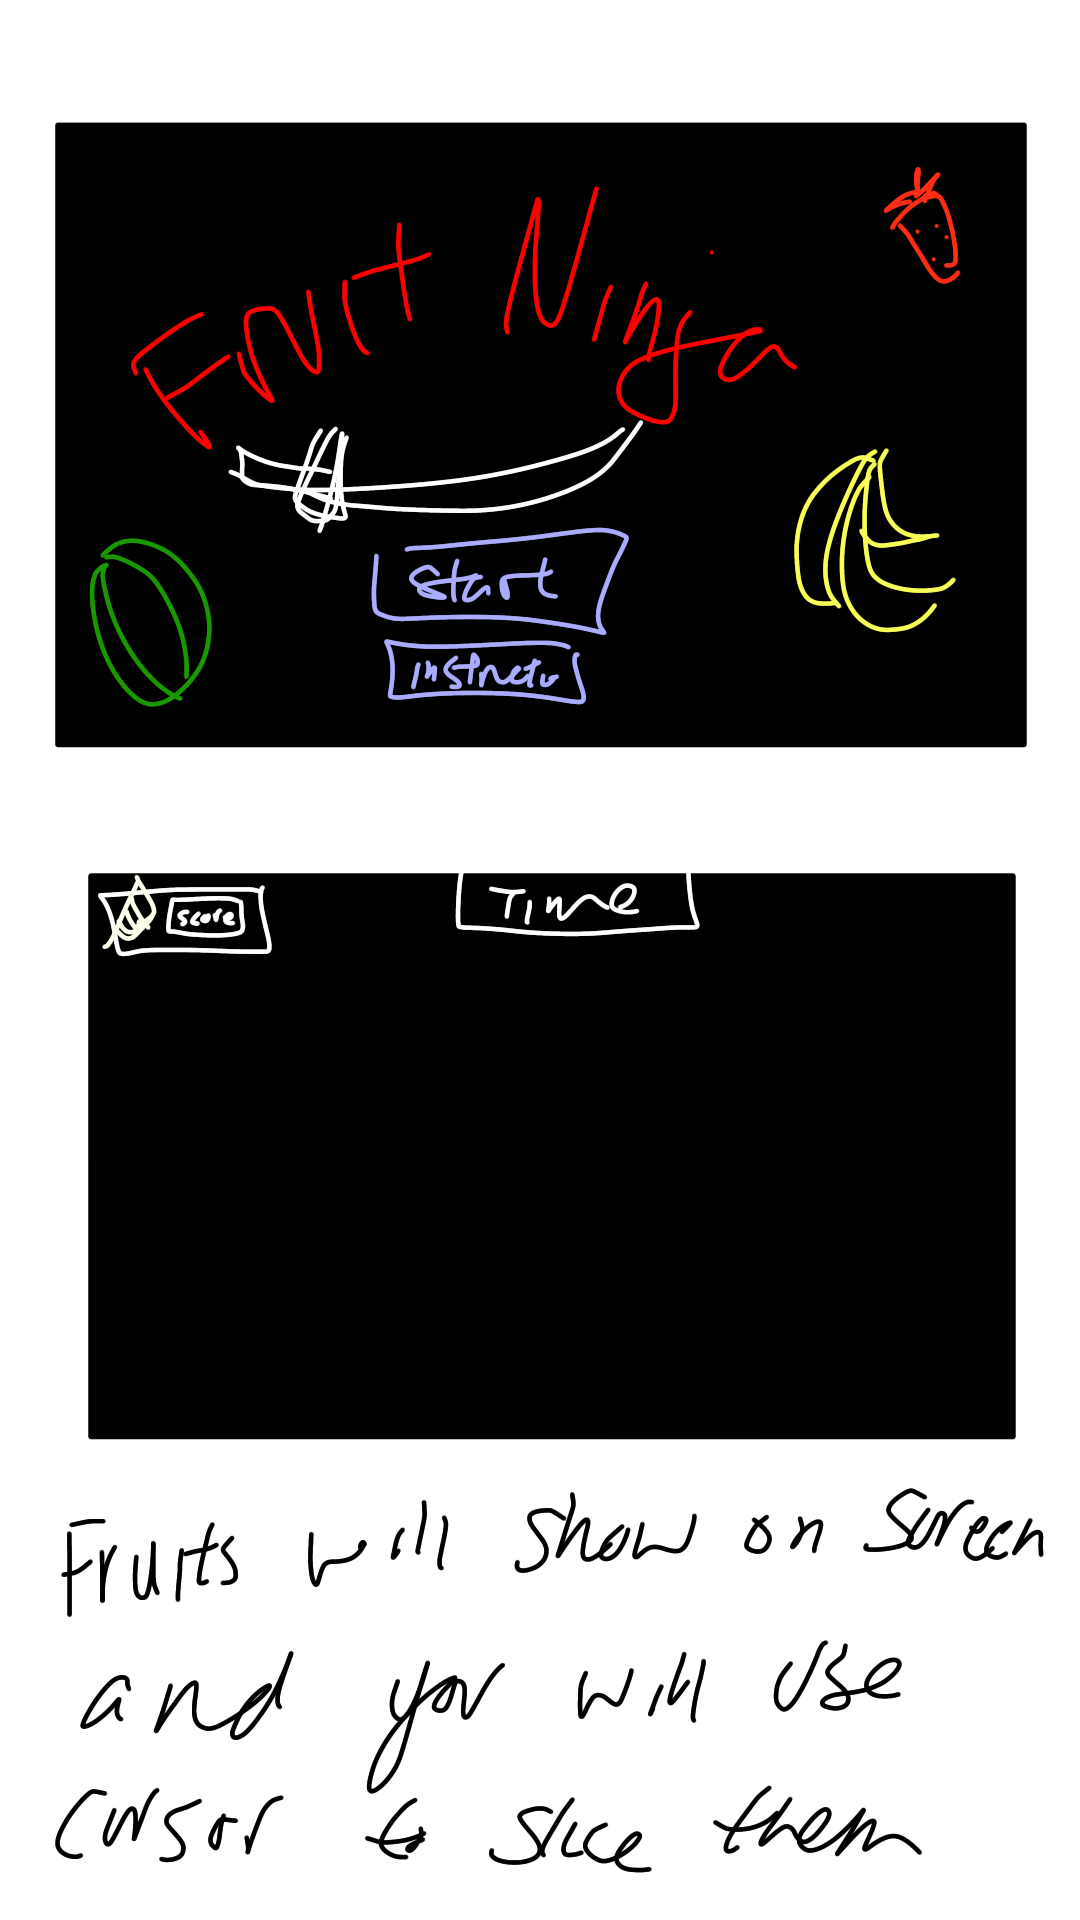 Fruit Ninja
Start
instructo
score
Time
Fruits will show on Screen
and you will use
cursor to slice them